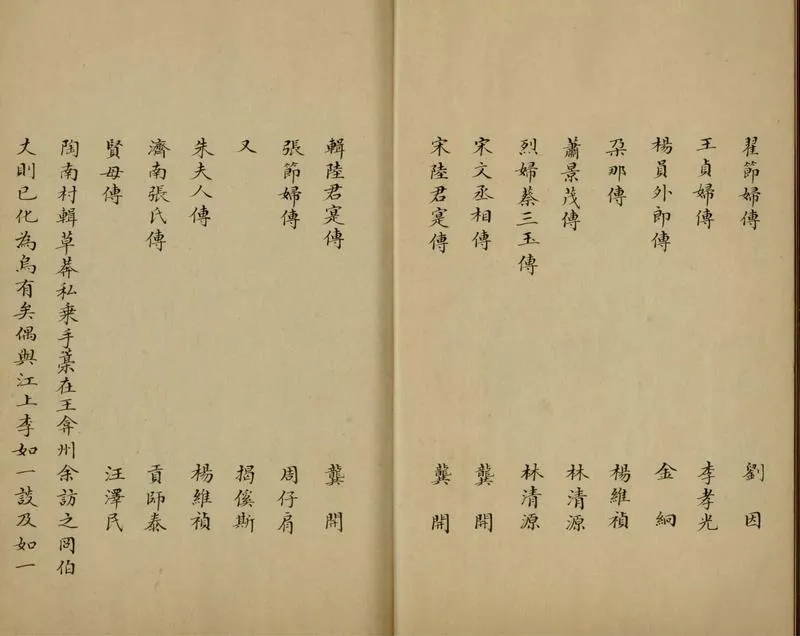 翟節婦傳 劉因
王貞婦傳 李孝光
楊員外郎傳 金絅
朶那傳 楊維禎
蕭景茂傳 林清源
烈婦蔡三玉傳 林清源
宋文丞相傳 龔開
宋陸君寔傳 龔開
輯陸君寔傳 龔開
張節婦傳 周仔肩
又 揭傒斯
朱夫人傳 楊維禎
濟南張氏傳 貢師泰
賢母傳 汪澤民
陶南村輯草莽私乗手藁在王弇州余訪之冏伯
丈則已化為烏有矣偶與江上李如一談及如一